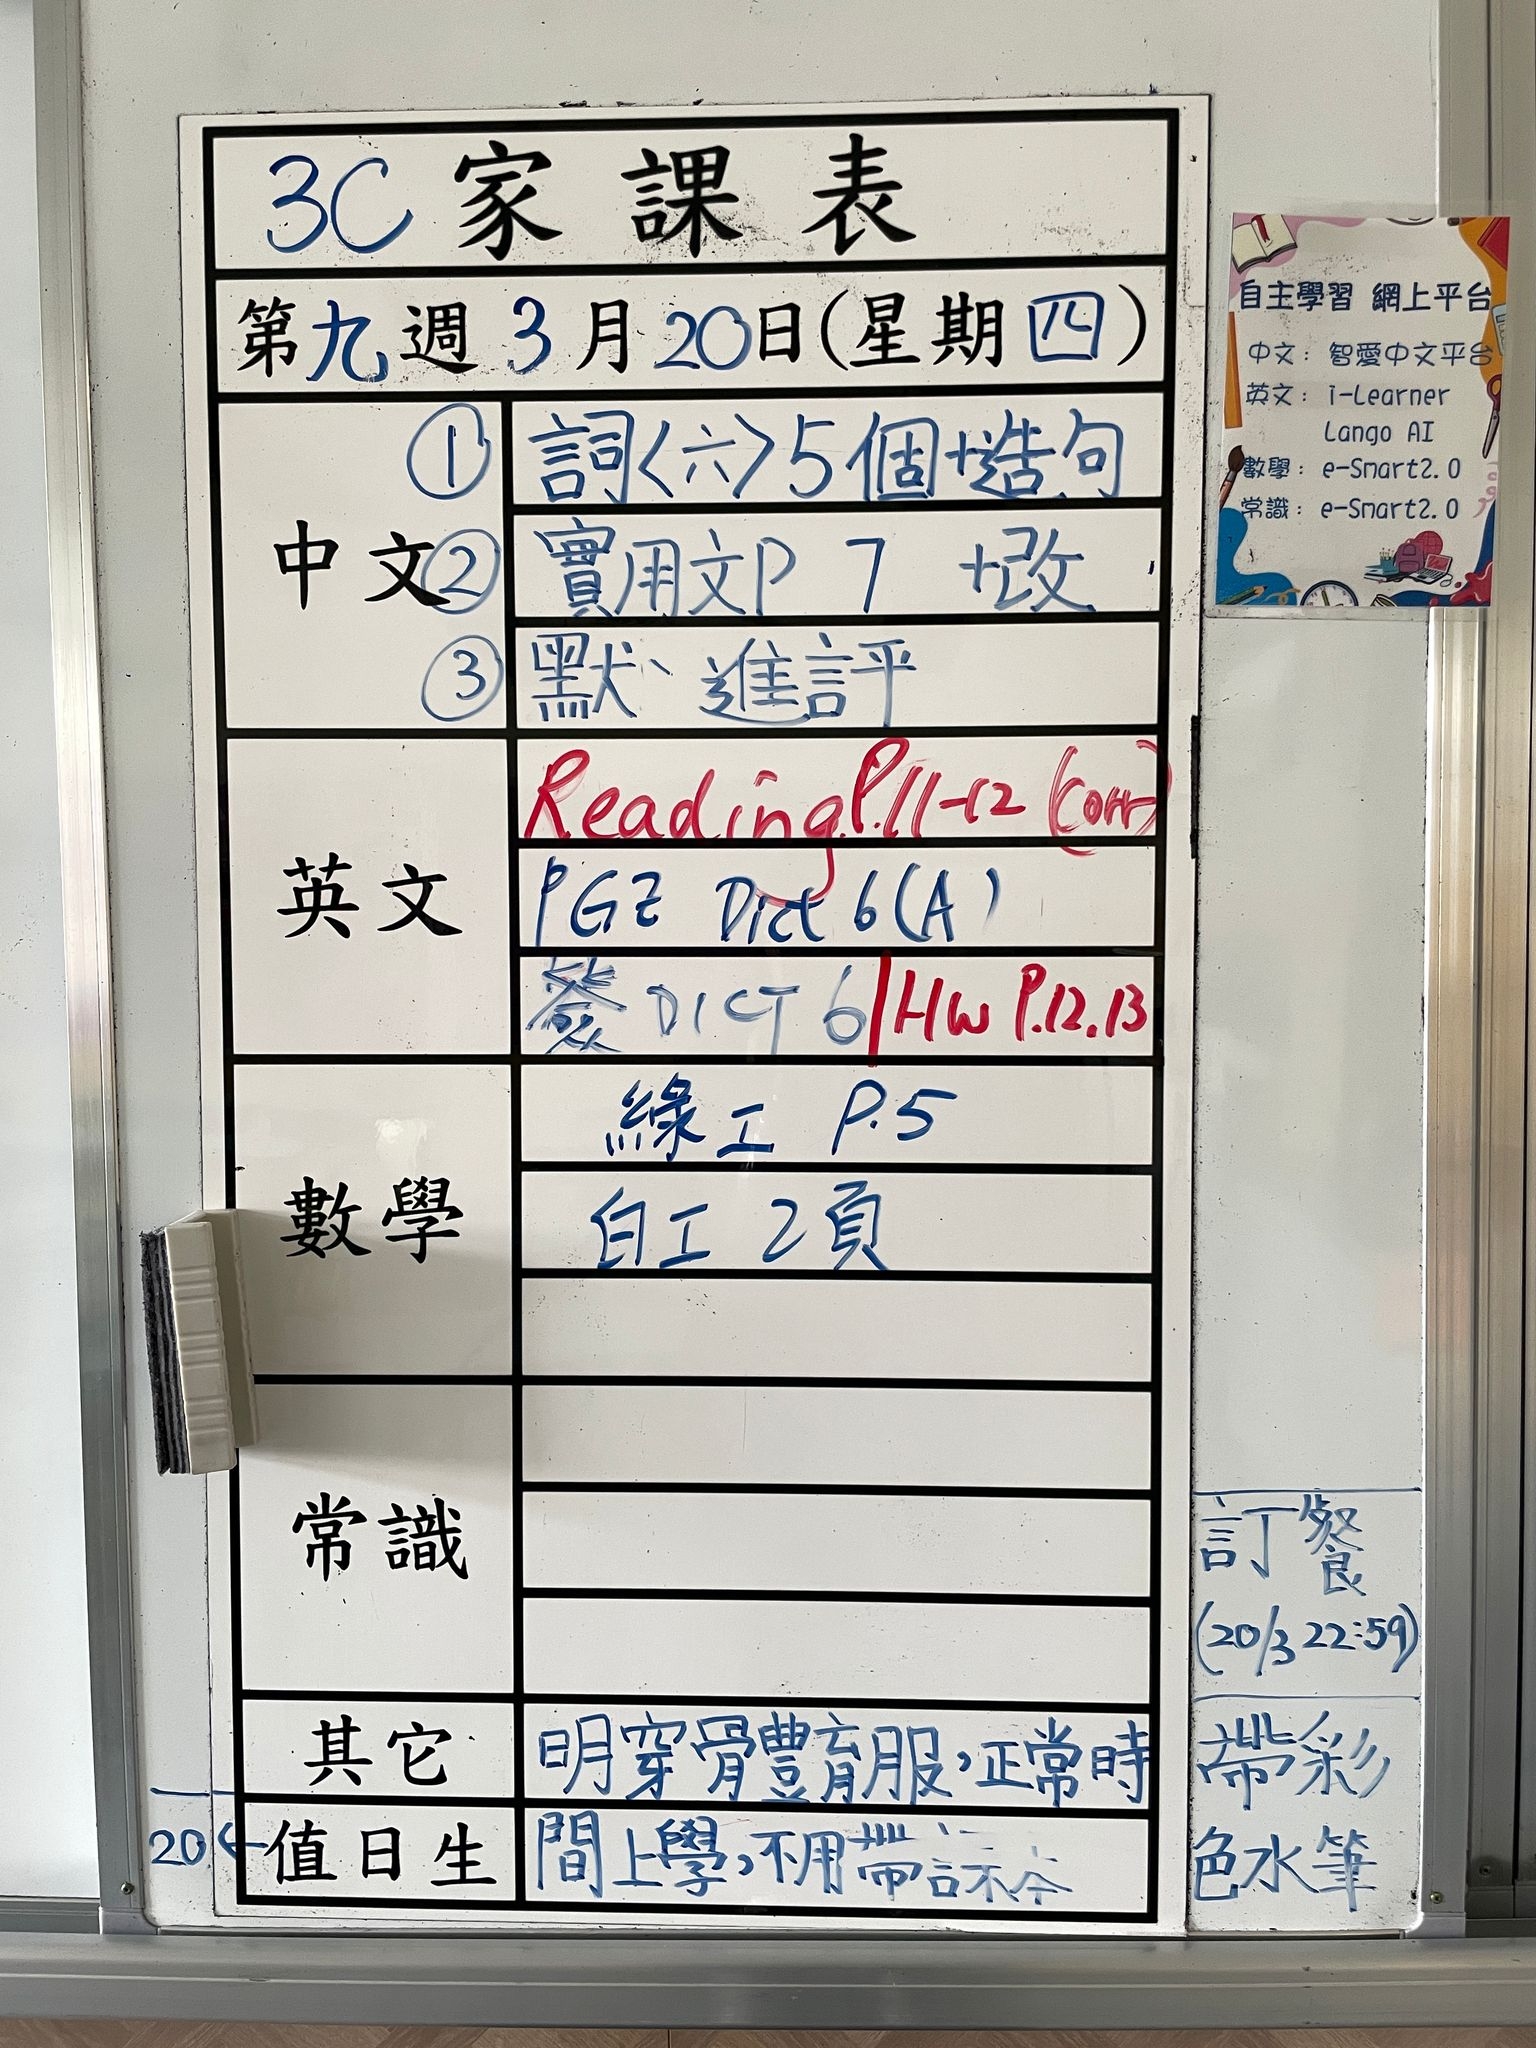 3C 家課表
第九週 3月20日(星期四)
中文
① 詞〈六〉5個+造句
② 實用文P 7 +改
③ 默、進評
英文
Reading P.11-12 (corr)
PGZ Dict 6(A)
簽 DICT 6 | HW P.12.13
數學
綠工 P.5
白工 2頁
常識
其它
明穿體育服，正常時
值日生
20 ←
間上學，不用帶
訂餐
(20/3 22:59)
帶彩
色水筆
自主學習 網上平台
中文：智愛中文平台
英文：i-Learner
Lango AI
數學：e-Smart2.0
常識：e-Smart2.0